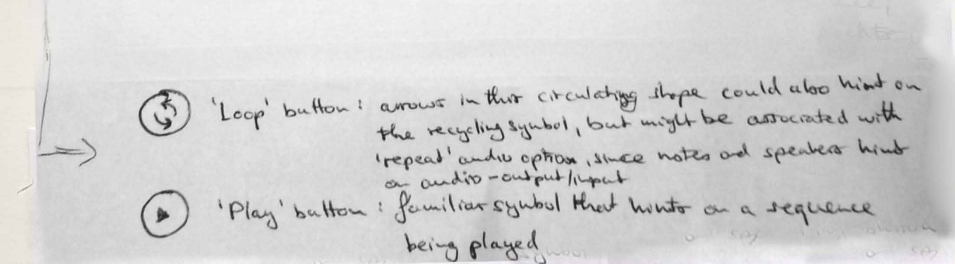 'Loop' button : arrows in this circulating shape could also hint on
the recycling symbol, but might be associated with
'repeat' audio option, since notes and speakers hint
on audio-output/input
'Play' button : familiar symbol that hints on a sequence
being played